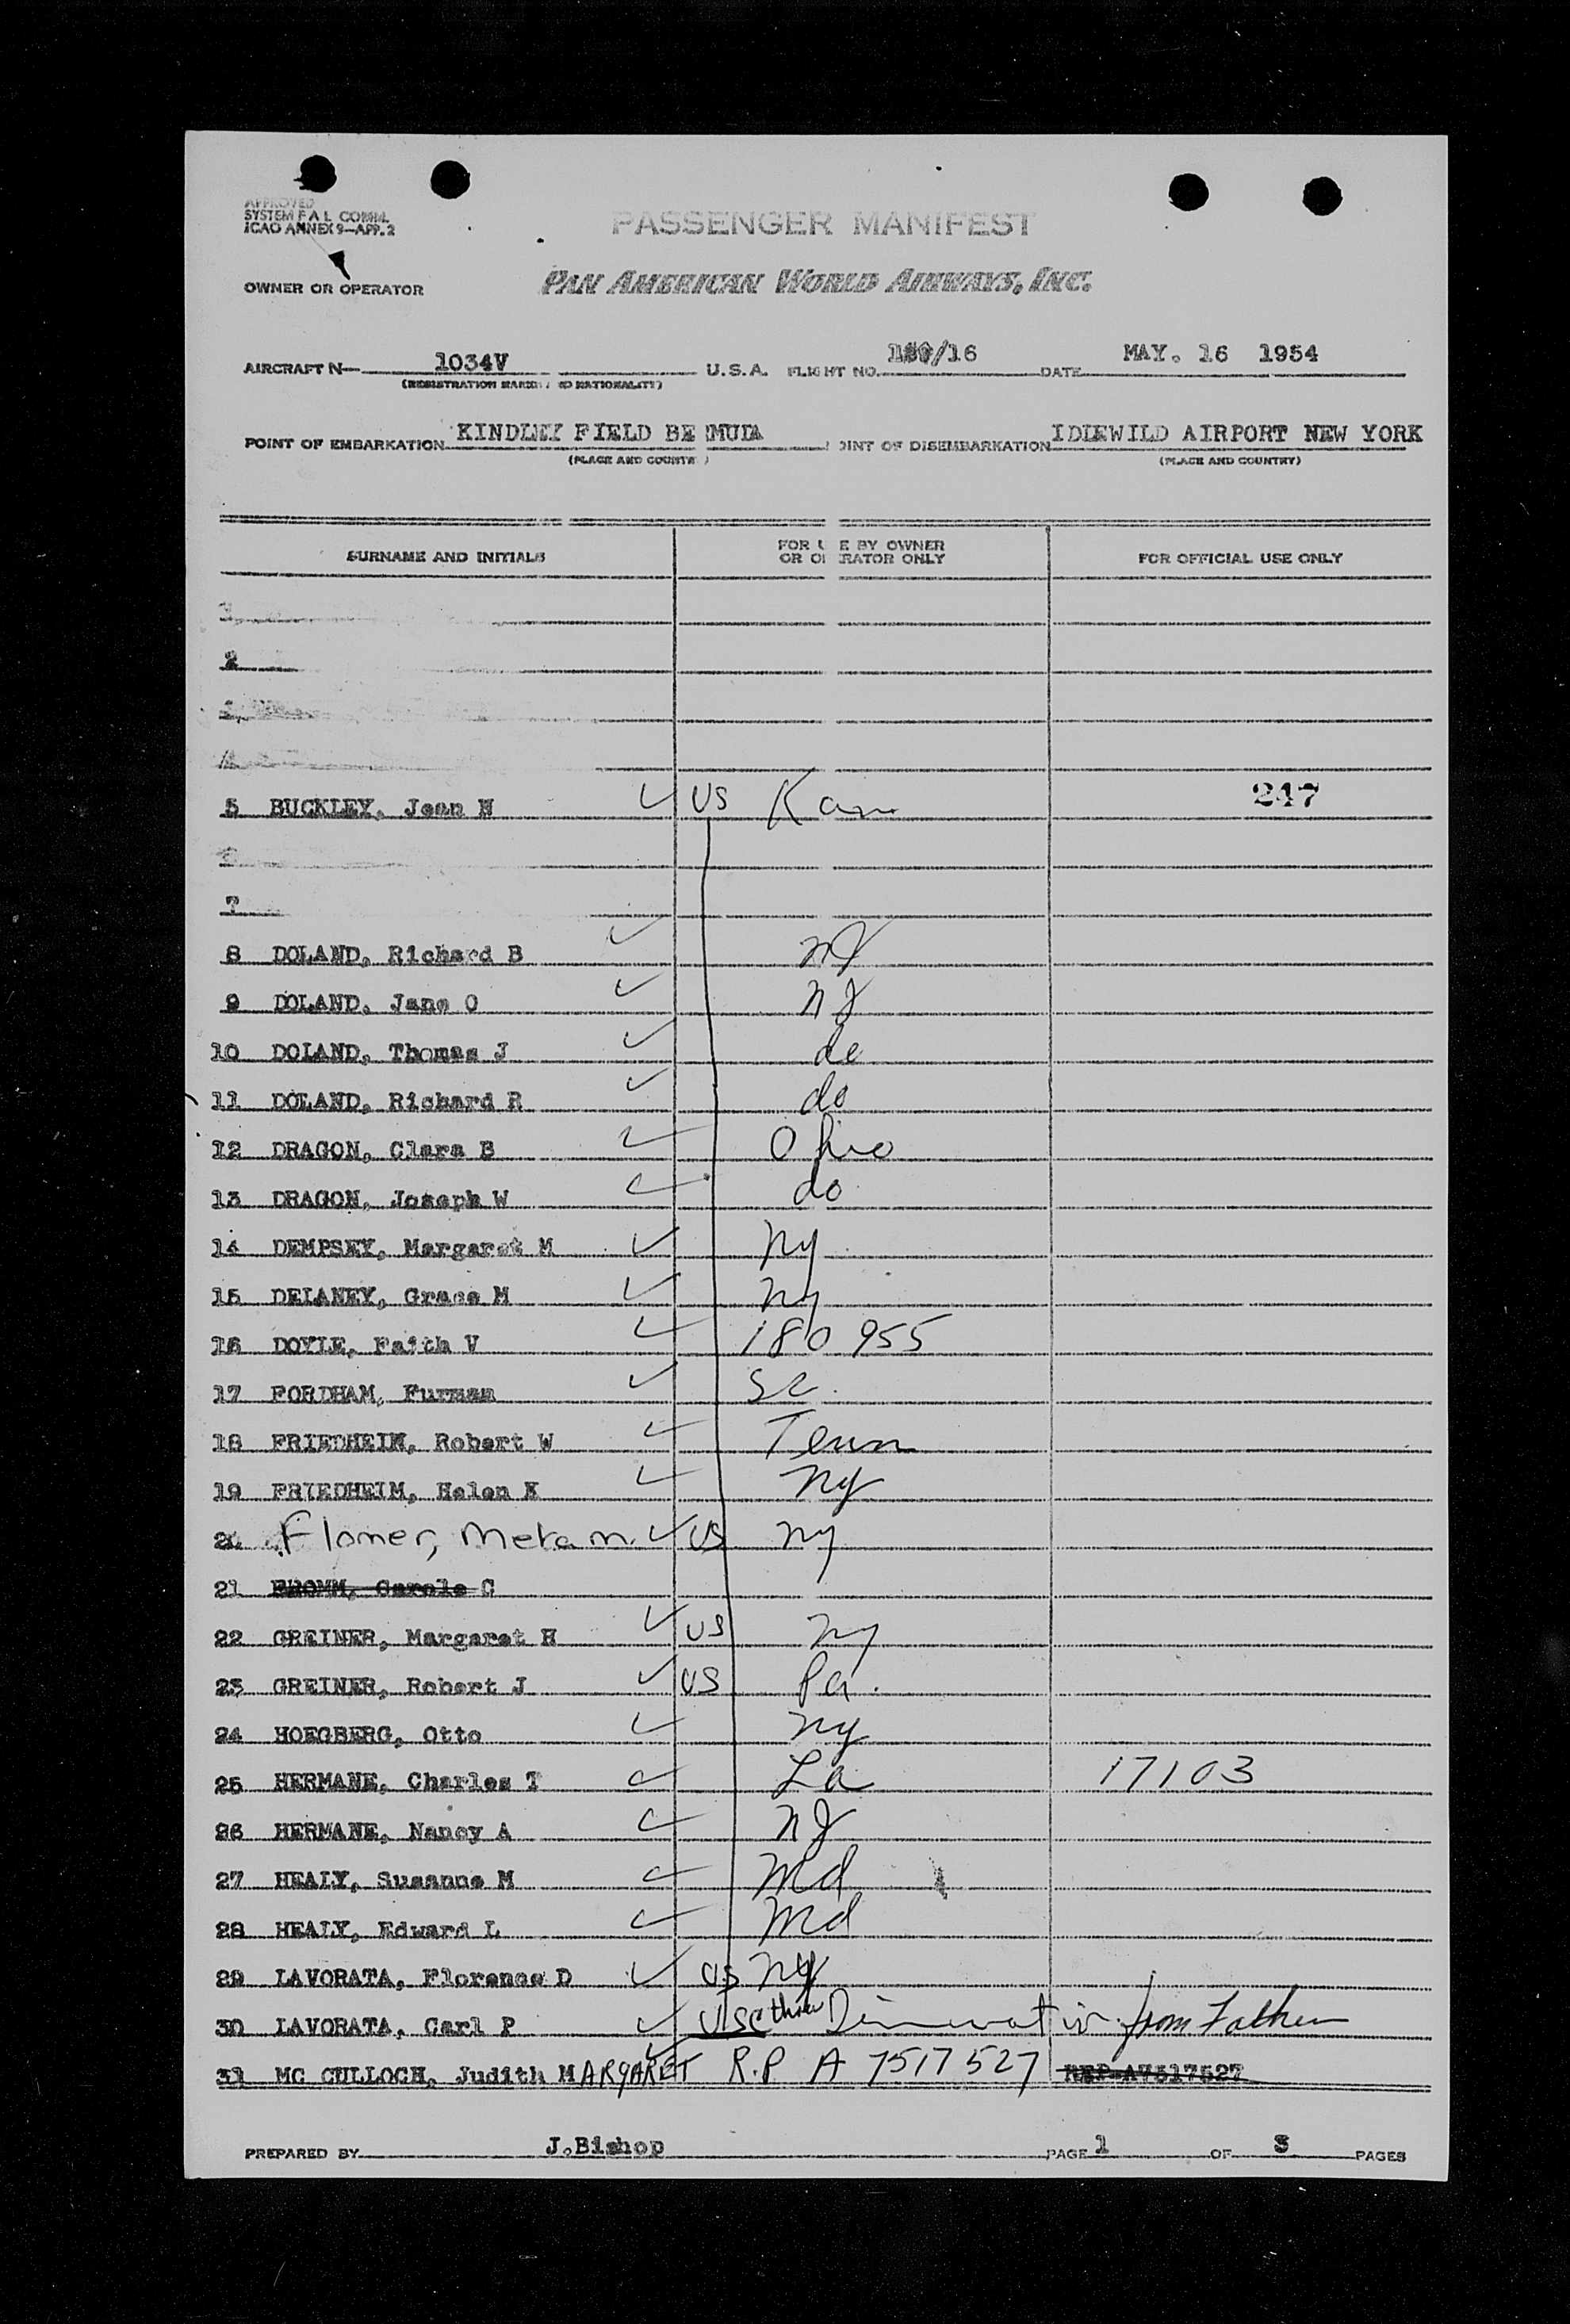 APPROVED
SYSTEM F A L COMM.
ICAO ANNEX 9—APP. 2
PASSENGER MANIFEST
OWNER OR OPERATOR
PAN AMERICAN WORLD AIRWAYS, INC.
AIRCRAFT N— 1034V U.S.A. FLIGHT NO. /16 DATE MAY. 16 1954
POINT OF EMBARKATION KINDLEY FIELD BE MUDA OINT OF DISEMBARKATION IDLEWILD AIRPORT NEW YORK
(PLACE AND COUNTR ) (PLACE AND COUNTRY)
SURNAME AND INITIALS FOR U E BY OWNER OR O RATOR ONLY FOR OFFICIAL USE ONLY
2
5 BUCKLEY, Jean H ✓ US Kan 247
7
8 DOLAND, Richard B ✓ NY
9 DOLAND, Jane O ✓ NJ
10 DOLAND, Thomas J ✓ do
11 DOLAND, Richard R ✓ do
12 DRAGON, Clara B ✓ Ohio
13 DRAGON, Joseph W ✓ do
14 DEMPSEY, Margaret M ✓ Ny
15 DELANEY, Grace M ✓ Ny
16 DOYLE, Faith V ✓ 180 955
17 FORDHAM, Furman ✓ SC.
18 FRIEDHEIM, Robert W ✓ Tenn
19 FRIEDHEIM, Helen K ✓ Ny
20 Flomer, Meta M. ✓ US Ny
21 FROMM, Carole C
22 GREINER, Margaret H ✓ US Ny
23 GREINER, Robert J ✓ US Pa.
24 HOEGBERG, Otto ✓ Ny
25 HERMANE, Charles T ✓ La 17103
26 HERMANE, Nancy A ✓ NJ
27 HEALY, Susanne M ✓ Md
28 HEALY, Edward L ✓ Md
29 LAVORATA, Florence D ✓ US NY
30 LAVORATA, Carl P ✓ USC thru from Father
31 MC CULLOCH, Judith MARGARET ✓ R.P A 7517527 REP A7517527
PREPARED BY J.Bishop PAGE 1 OF 3 PAGES